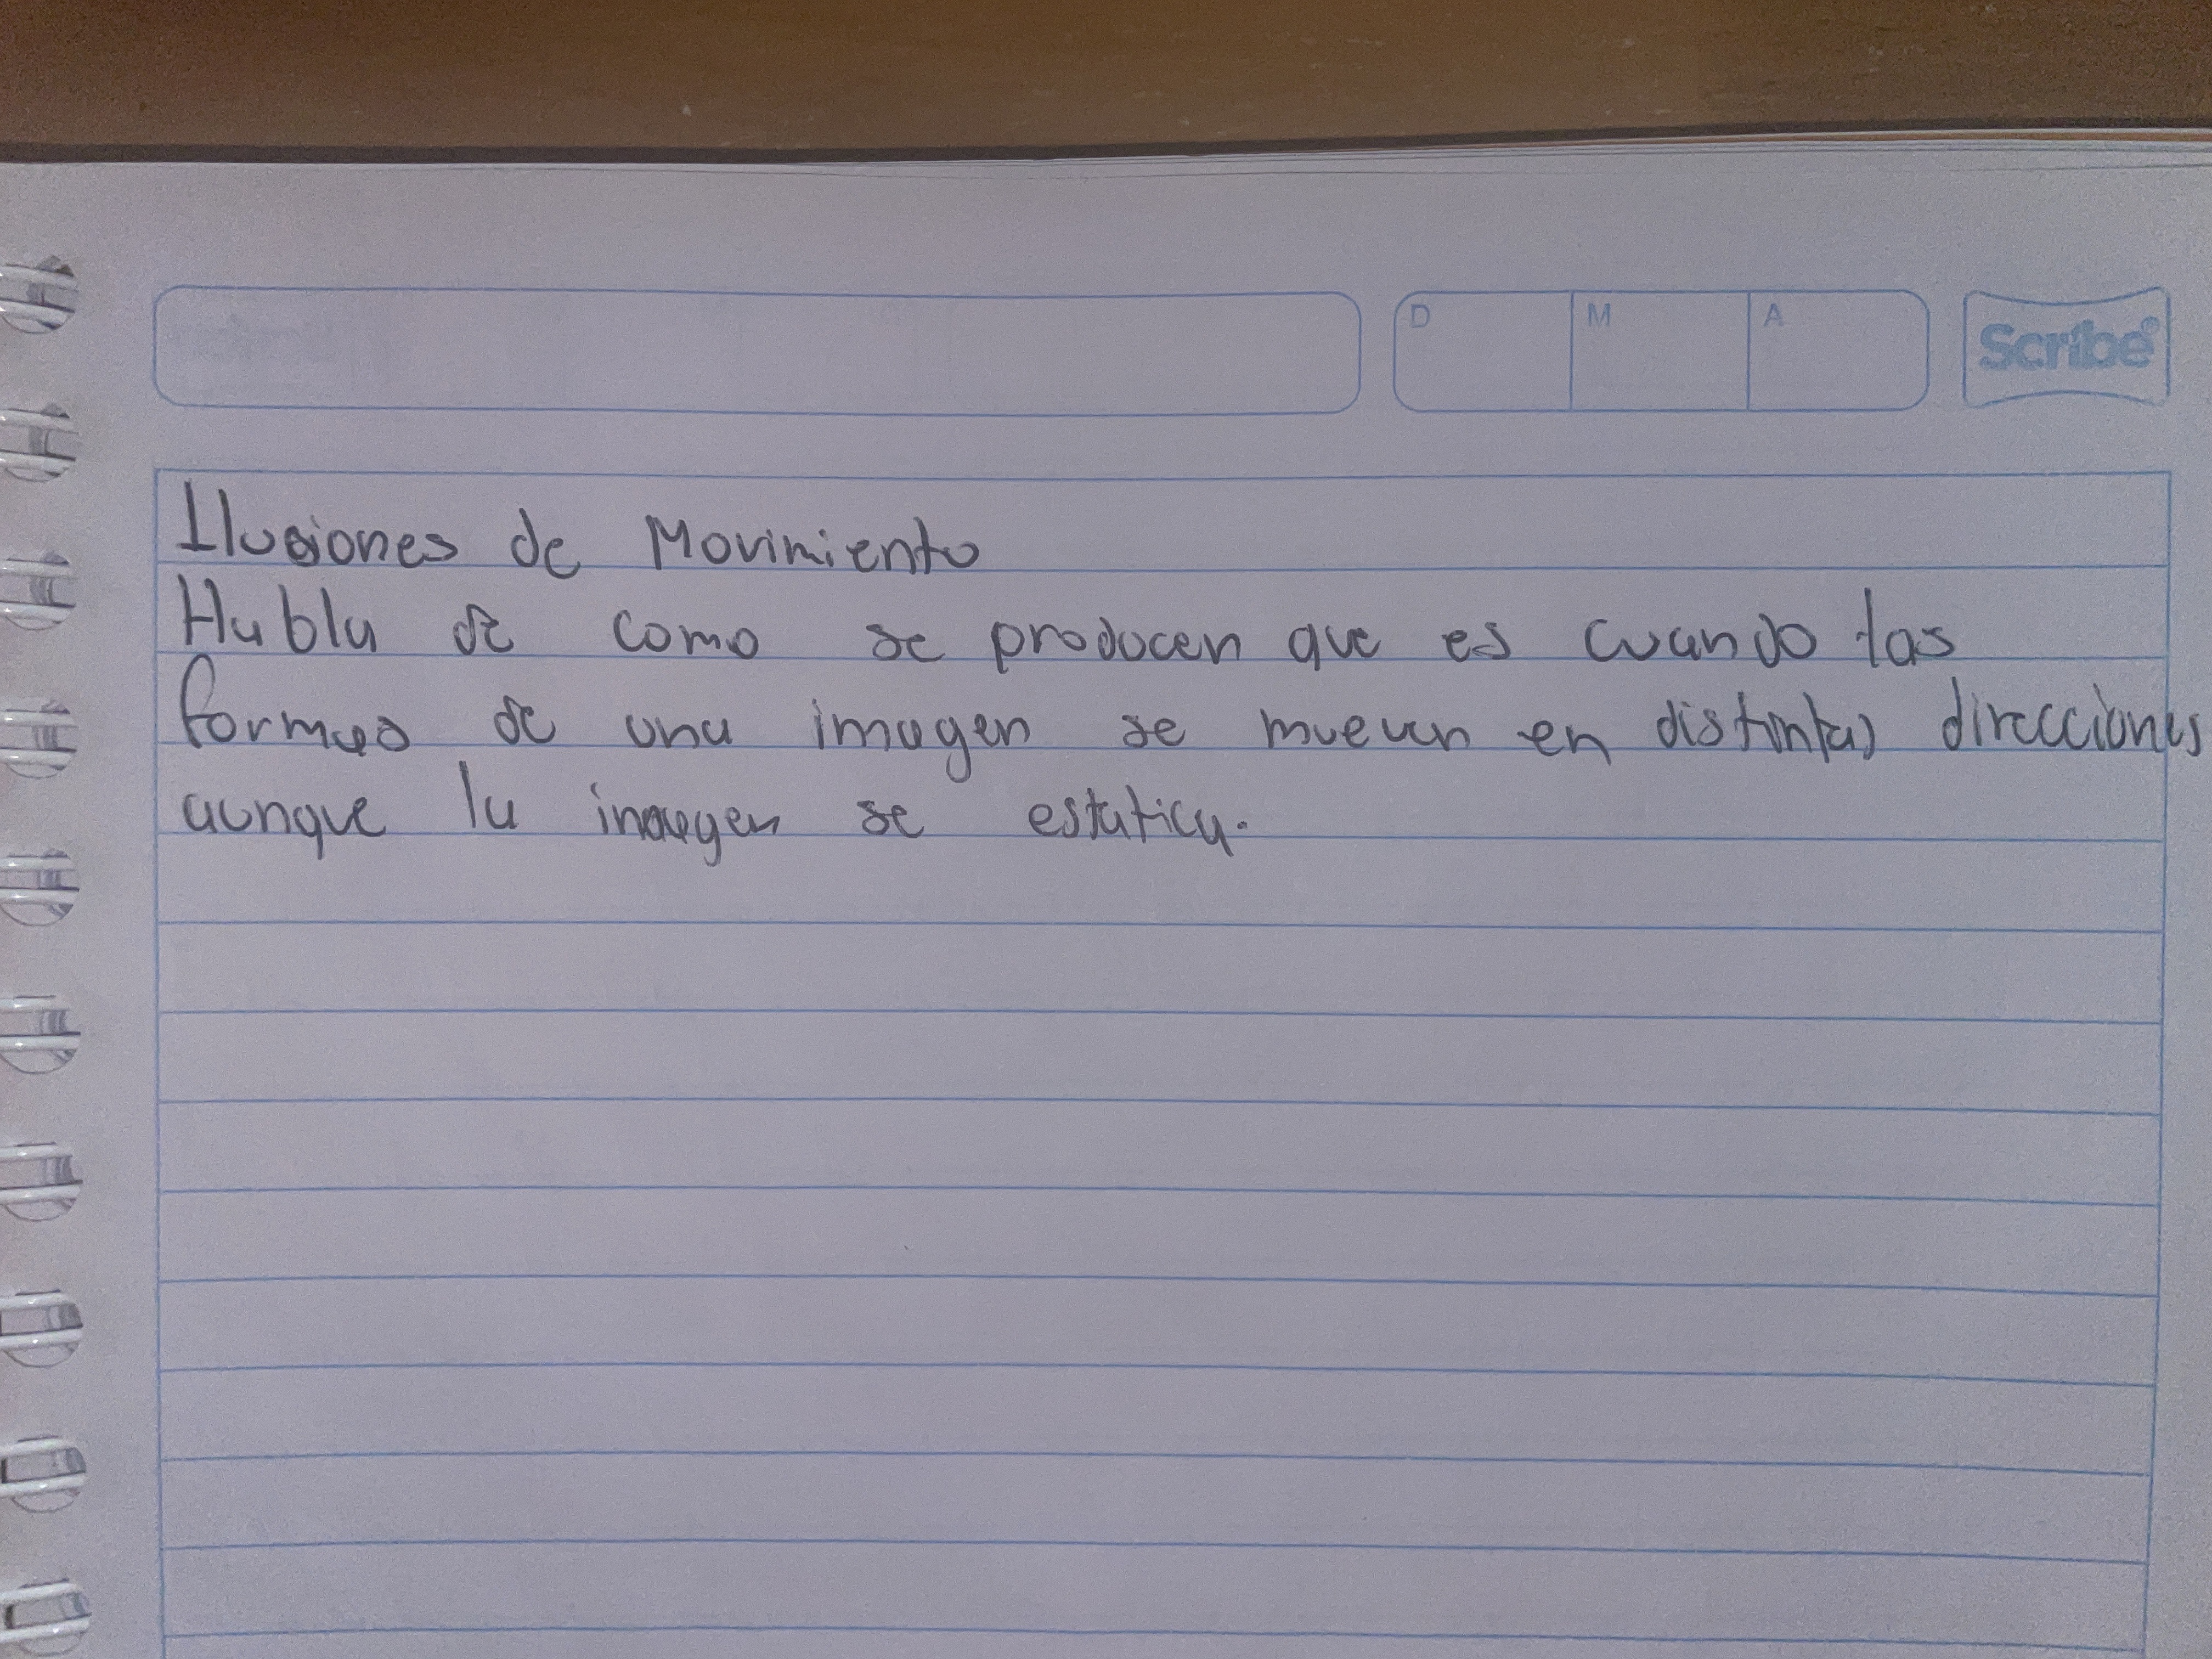 D M A Scribe®
Ilusiones de Movimiento
Habla de como se producen que es cuando las
formas de una imagen se mueven en distintas direcciones
aunque la imagen se estatica.